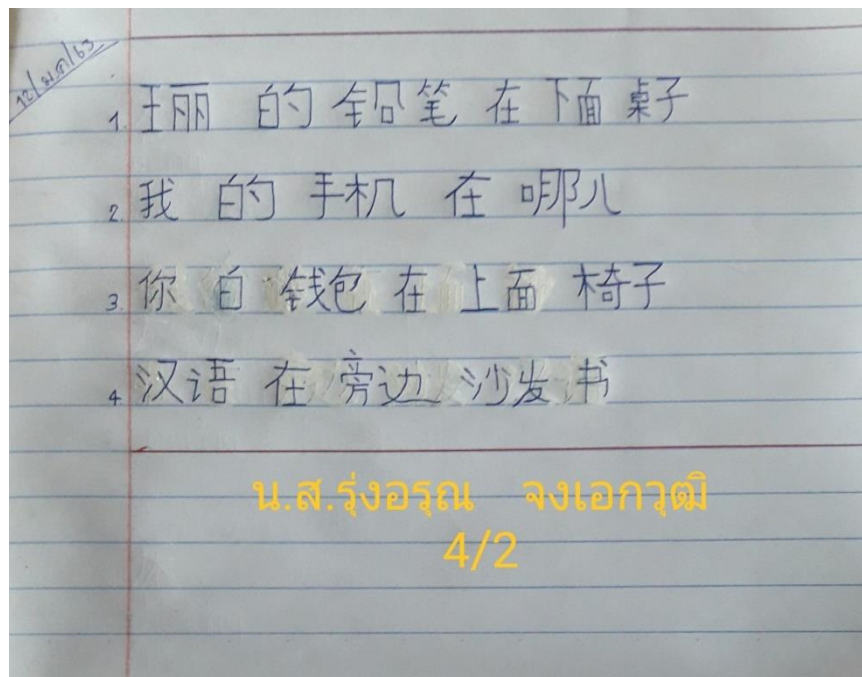 12/ม.ค/63
1. 王丽 的 铅笔 在 下面 桌子
2. 我 的 手机 在 哪儿
3. 你 白 钱包 在 上面 椅子
4. 汉语 在 旁边 沙发 书
น.ส.รุ่งอรุณ จงเอกวุฒิ
4/2